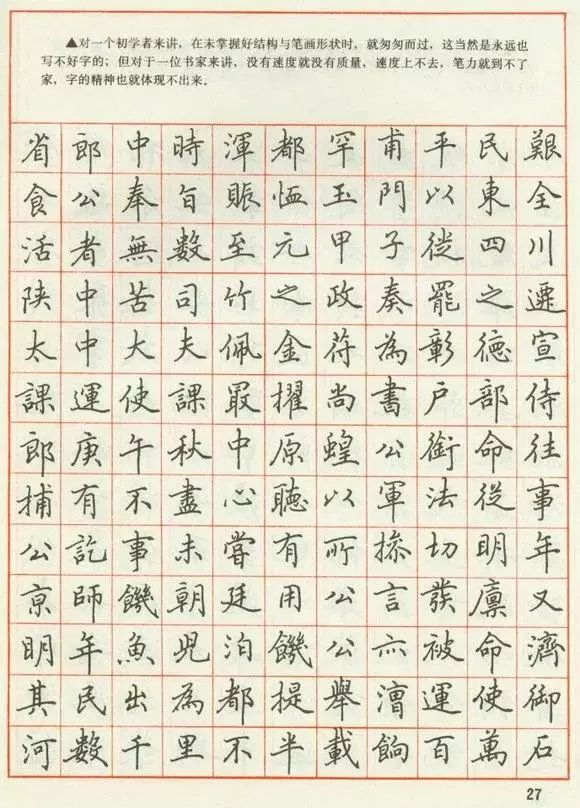 ▲对一个初学者来讲，在未掌握好结构与笔画形状时，就匆匆而过，这当然是永远也
写不好字的；但对于一位书家来讲，没有速度就没有质量，速度上不去，笔力就到不了
家，字的精神也就体现不出来。
省郎中時渾都罕甫平民艱
食公奉旨賑恤玉門以東全
活者無數至元甲子從四川
陝中苦司竹之政奏罷之遷
太中大夫佩金苻為彰德宣
課運使課最擢尚書戶部侍
郎庚午秋中原蝗公銜命往
捕有不盡心聽以軍法從事
公訖事未嘗有所摻切明年
京師饑朝廷用公言發廩又
明年魚兒泊饑公亦被命濟
其民出為都提舉漕運使御
河數千里不半載餉百萬石
27